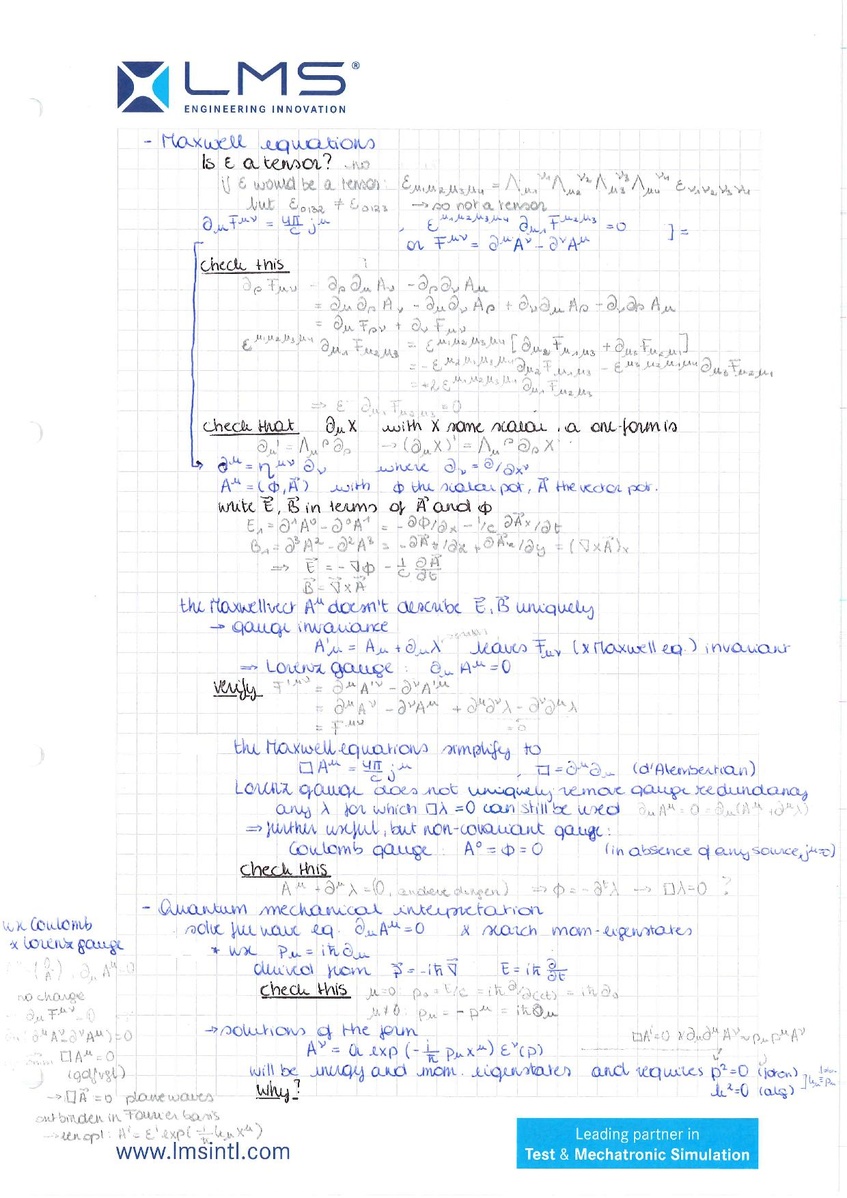 LMS®
ENGINEERING INNOVATION
- Maxwell equations
Is ε a tensor? no
if ε would be a tensor: ε_μ1μ2μ3μ4 = Λ_μ1^ν1 Λ_μ2^ν2 Λ_μ3^ν3 Λ_μ4^ν4 ε_ν1ν2ν3ν4
but ε_0132 ≠ ε_0123 → so not a tensor
∂_μ F^μν = 4π/c j^μ , ε^μ1μ2μ3μ4 ∂_μ1 F^μ2μ3 = 0 ] =
or F^μν = ∂^μ A^ν - ∂^ν A^μ
check this
∂_ρ F_μν = ∂_ρ ∂_μ A_ν - ∂_ρ ∂_ν A_μ
= ∂_μ ∂_ρ A_ν - ∂_μ ∂_ν A_ρ + ∂_ν ∂_μ A_ρ - ∂_ν ∂_ρ A_μ
= ∂_μ F_ρν + ∂_ν F_μν
ε^μ1μ2μ3μ4 ∂_μ1 F_μ2μ3 = ε^μ1μ2μ3μ4 [∂_μ2 F_μ1μ3 + ∂_μ3 F_μ2μ1]
= -ε^μ2μ1μ3μ4 ∂_μ2 F_μ1μ3 - ε^μ3μ2μ1μ4 ∂_μ3 F_μ2μ1
= +2 ε^μ1μ2μ3μ4 ∂_μ1 F_μ2μ3
⇒ ε ∂_μ1 F_μ2μ3 = 0
check that ∂_μ X with X some scalar, a one-form is
∂_μ' = Λ_μ^ρ ∂_ρ → (∂_μ X)' = Λ_μ^ρ ∂_ρ X
∂^μ = η^μν ∂_ν where ∂_ν = ∂/∂x^ν
A^μ = (ϕ, A⃗) with ϕ the scalar pot, A⃗ the vector pot.
write E⃗, B⃗ in terms of A⃗ and ϕ
E_1 = ∂^1 A^0 - ∂^0 A^1 = -∂ϕ/∂x - 1/c ∂A⃗_x/∂t
B_1 = ∂^3 A^2 - ∂^2 A^3 = -∂A⃗_y/∂z + ∂A⃗_z/∂y = (∇×A⃗)_x
⇒ E⃗ = -∇ϕ - 1/c ∂A⃗/∂t
B⃗ = ∇⃗×A⃗
the Maxwellvect A^μ doesn't describe E⃗, B⃗ uniquely
→ gauge invariance
A'_μ = A_μ + ∂_μ λ leaves F_μν (× Maxwell eq.) invariant
⇒ Lorenz gauge : ∂_μ A^μ = 0
verify F'^μν = ∂^μ A'^ν - ∂^ν A'^μ
= ∂^μ A^ν - ∂^ν A^μ + ∂^μ ∂^ν λ - ∂^ν ∂^μ λ
= F^μν = 0
the Maxwell equations simplify to
□A^μ = 4π/c j^μ , □ = ∂^μ ∂_μ (d'Alembertian)
Lorenz gauge does not uniquely remove gauge redundancy
any λ for which □λ = 0 can still be used ∂_μ A^μ = 0 = ∂_μ(A^μ + ∂^μ λ)
⇒ further useful, but non-covariant gauge:
Coulomb gauge : A^0 = ϕ = 0 (in absence of any source, j^μ=0)
check this
A^μ + ∂^μ λ = (0, andere dingen) ⇒ ϕ = -∂^t λ → □λ = 0 ?
- Quantum mechanical interpretation
solve the wave eq. ∂_μ A^μ = 0 × search mom-eigenstates
* use p_μ = iħ ∂_μ
derived from p⃗ = -iħ ∇⃗ E = iħ ∂/∂t
check this μ=0: p_0 = E/c = iħ ∂/∂(ct) = iħ ∂_0
μ≠0: p_μ = -p^μ = iħ ∂_μ
→ solutions of the form □A^ν = 0 × ∂_μ ∂^μ A^ν ~ p_μ p^μ A^ν
A^ν = a exp(-i/ħ p_μ x^μ) ε^ν(p)
will be energy and mom. eigenstates and requires p² = 0 (foton)
k² = 0 (alg)
why?
use Coulomb
× Lorenz gauge
(0 A⃗), ∂_μ A^μ = 0
no charge
∂_μ F^μν = 0
∂_μ(∂^μ A^ν - ∂^ν A^μ) = 0
□A^μ = 0
(golfvgl)
→ □A⃗ = 0 plane waves
ontbinden in Fourier basis
→ een opl: A^i = ε^i exp(-i/ħ k_μ x^μ)
www.lmsintl.com
Leading partner in
Test & Mechatronic Simulation